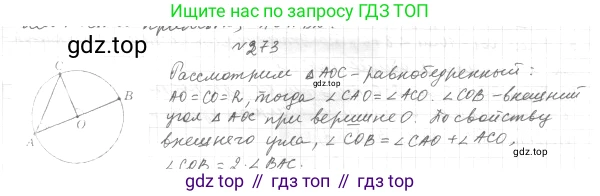 Ищите нас по запросу
ГДЗ ТОП
gdz.top
№273
Рассмотрим △AOC - равнобедренный:
AO=CO=R, тогда ∠CAO=∠ACO. ∠COB - внешний
угол △AOC при вершине O. По свойству
внешнего угла, ∠COB=∠CAO+∠ACO,
∠COB=2·∠BAC.
C
B
O
A
gdz.top
gdz.top
gdz.top
gdz.top // гдз топ // гдз.top